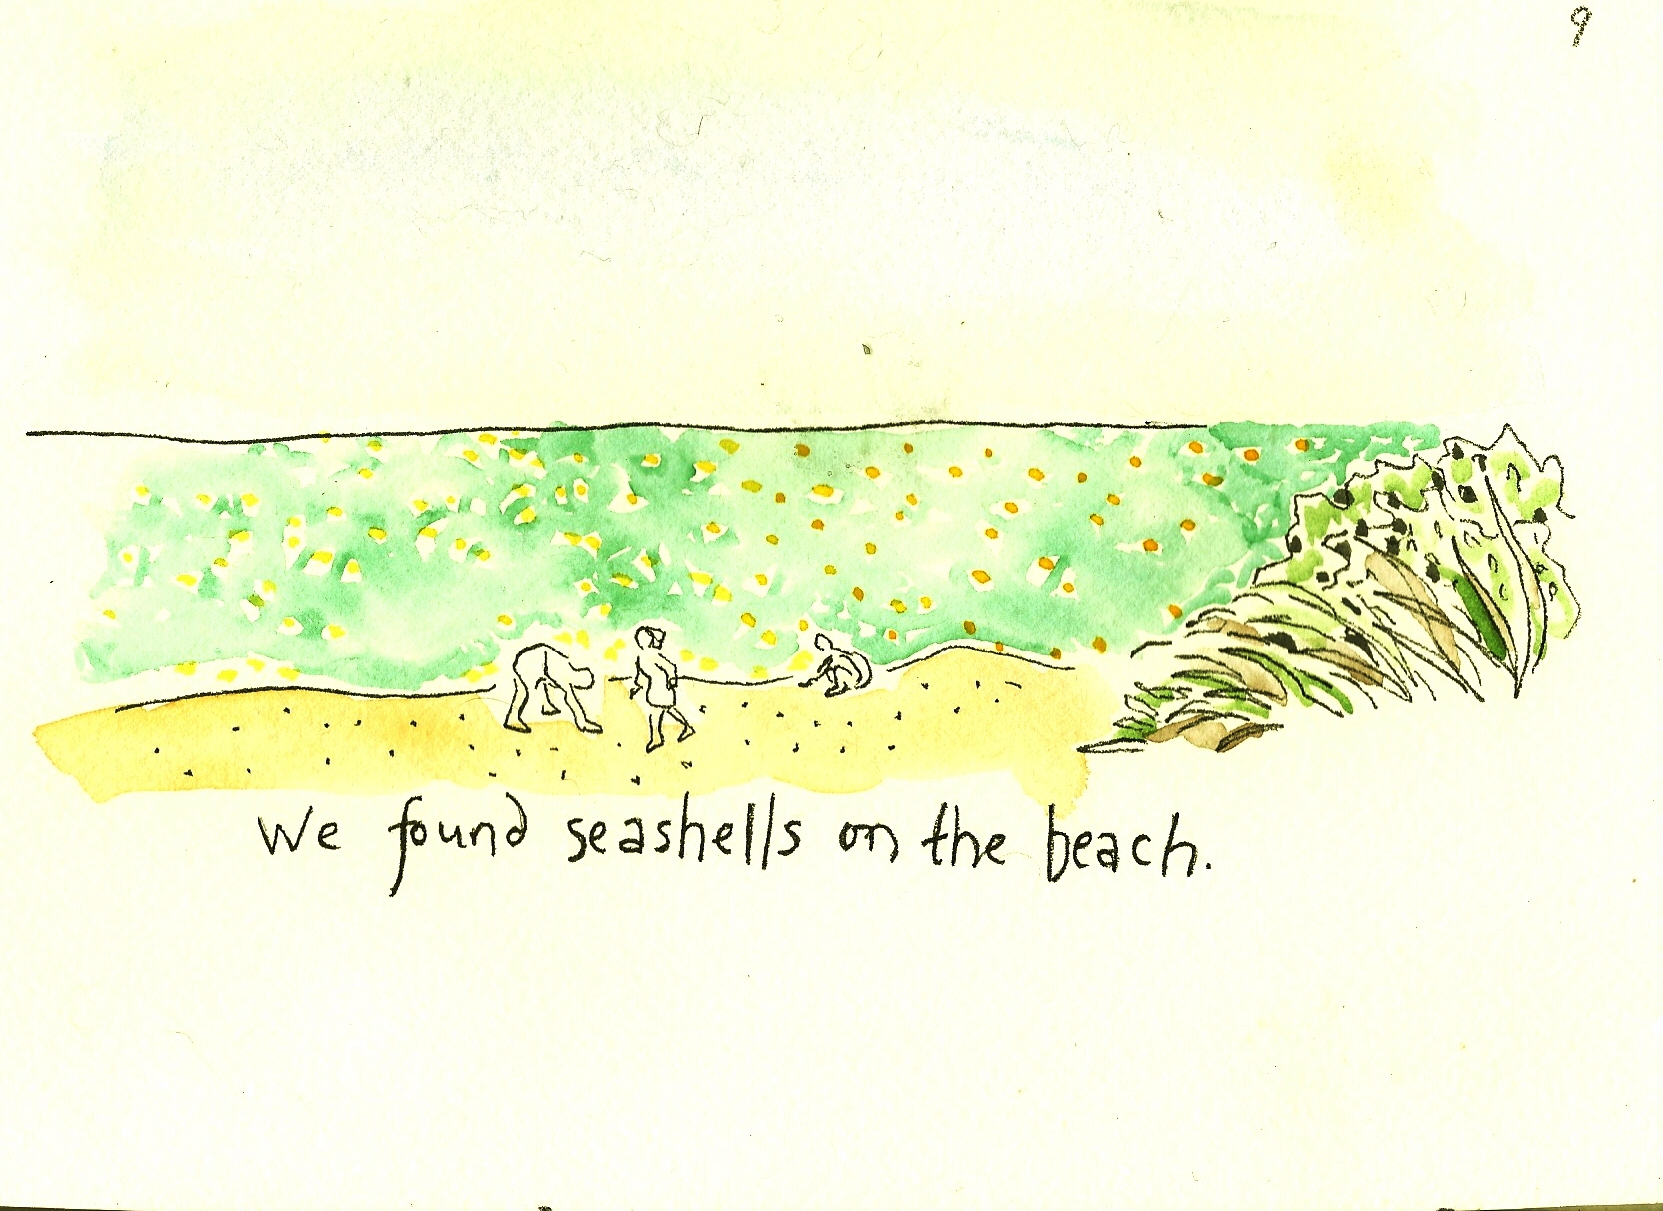 9
We found seashells on the beach.